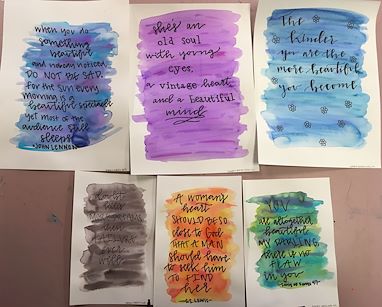 when you do
something beautiful
and nobody noticed
DO NOT BE SAD.
For the sun every
morning is a
beautiful spectacle
yet most of the
audience still
sleeps
-JOHN LENNON
she's an
old soul
with young
eyes,
a vintage heart,
and a beautiful
mind
The
kinder
you are the
more beautiful
you become
doubt
kills
more dreams
than
FAILURE
ever
will
A woman's
heart
SHOULD BE SO
close to God
THAT A MAN
should have
to seek him
TO FIND
her
YOU
are altogether
beautiful
MY DARLING,
there is no
FLAW
in you